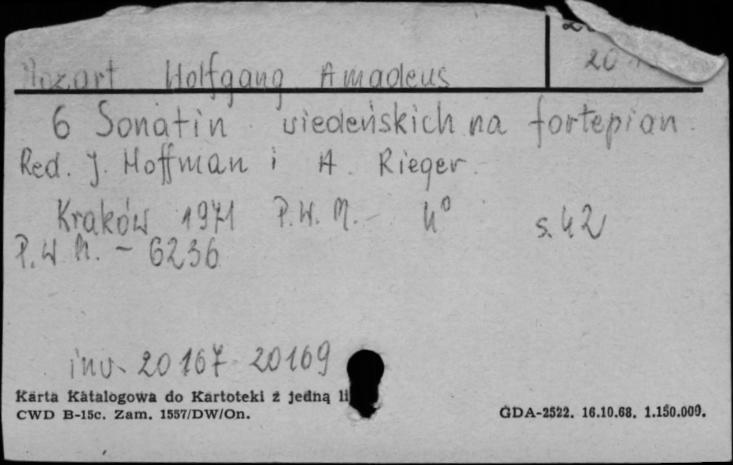 Mozart Wolfgang Amadeus
6 Sonatin wiedeńskich na fortepian
Red. J. Hoffman i A. Rieger.
Kraków 1971 P.W.M. – 4° s. 42
P.W.M. – 6236
inw. 20167 - 20169
Karta Katalogowa do Kartoteki z jedną
CWD B-15c. Zam. 1557/DW/On. GDA-2522. 16.10.68. 1.150.000.